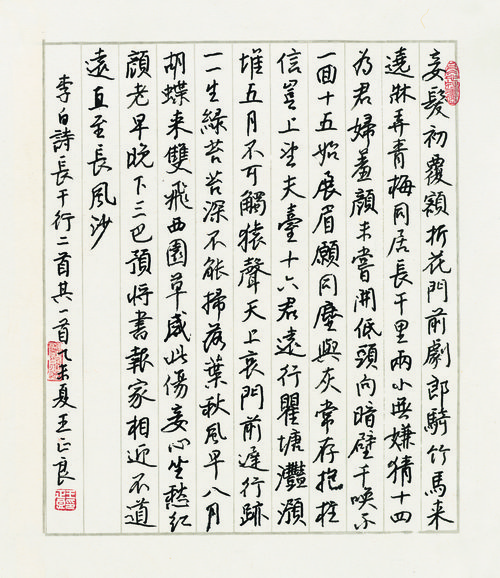 妾髮初覆額折花門前劇郎騎竹馬来
遶牀弄青梅同居長干里兩小無嫌猜十四
為君婦羞顏未嘗開低頭向暗壁千喚不
一回十五始展眉願同塵與灰常存抱柱
信豈上望夫臺十六君遠行瞿塘灩澦
堆五月不可觸猿聲天上哀門前遲行跡
一一生綠苔苔深不能掃落葉秋風早八月
胡蝶来雙飛西園草感此傷妾心坐愁紅
顏老早晚下三巴預將書報家相迎不道
遠直至長風沙
李白詩長干行二首其一首乙未夏王正良